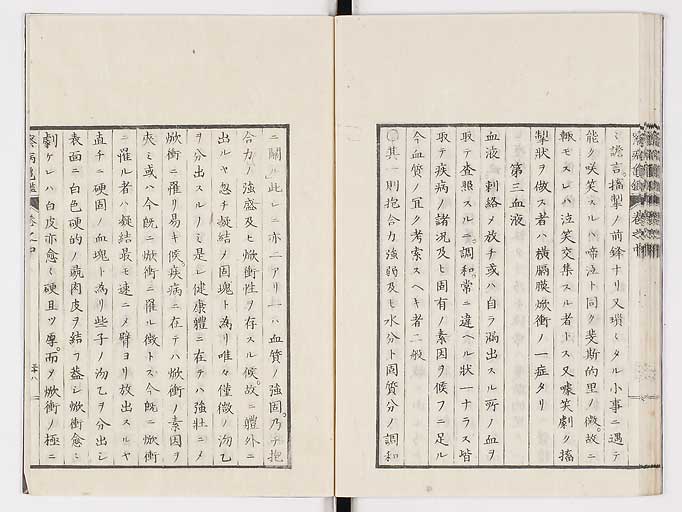 ミ譫言。搐掣ノ前鋒ナリ又瑣〻タル小事ニ遇テ
能ク咲笑スルハ啼泣ト同ク斐斯的里ノ徴。故ニ
輙モスレハ泣笑交集スル者トス又嚎笑劇ク搐
掣狀ヲ做ス者ハ横膈膜焮衝ノ一症タリ
第三血液
血液ハ刺絡メ放チ或ハ自ラ漏出スル所ノ血ヲ
取テ査照スルニ。調和。常ニ違ヘル狀一ナラス皆
取テ疾病ノ諸況及ヒ固有ノ素因ヲ候フニ足ル
今血質ノ宜ク考索スヘキ者二般
○其一則抱合力強弱及ヒ水分ト固質分ノ調和
ニ關ル此レニ亦二アリ一ハ血質ノ強固。乃チ抱
合力ノ強盛及ヒ焮衝性ヲ存スル候。故ニ體外ニ
出ルヤ忽チ凝結メ固塊ト為リ唯々僅微ノ沕乙
ヲ分出スルノミ是レ健康體ニ在テハ強壯ニメ
焮衝ニ罹リ易キ候。疾病ニ在テハ焮衝ノ素因ヲ
夾ミ或ハ今既ニ焮衝ニ罹ル徴トス今既ニ焮衝
ニ罹ル者ハ凝結最モ速ニメ臂ヨリ放出スルヤ
直チニ硬固ノ血塊ト為リ些子ノ沕乙ヲ分出シ
表面ニ白色硬的ノ脆肉皮ヲ結フ蓋シ焮衝愈〻
劇ケレハ白皮亦愈〻硬且ツ厚。而メ焮衝ノ極ニ
卷之四